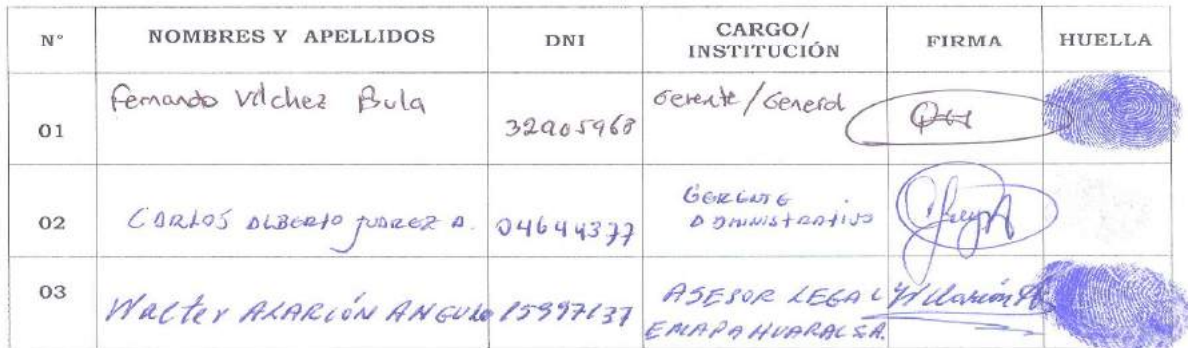 N° NOMBRES Y APELLIDOS DNI CARGO/ INSTITUCIÓN FIRMA HUELLA
01 Fernando Vilchez Bula 32905968 Gerente/General
02 CARLOS ALBERTO JUAREZ A. 04644377 GERENTE ADMINISTRATIVO
03 Walter ALARCIÓN ANGULO 15997137 ASESOR LEGAL EMAPA HUARAL S.A.